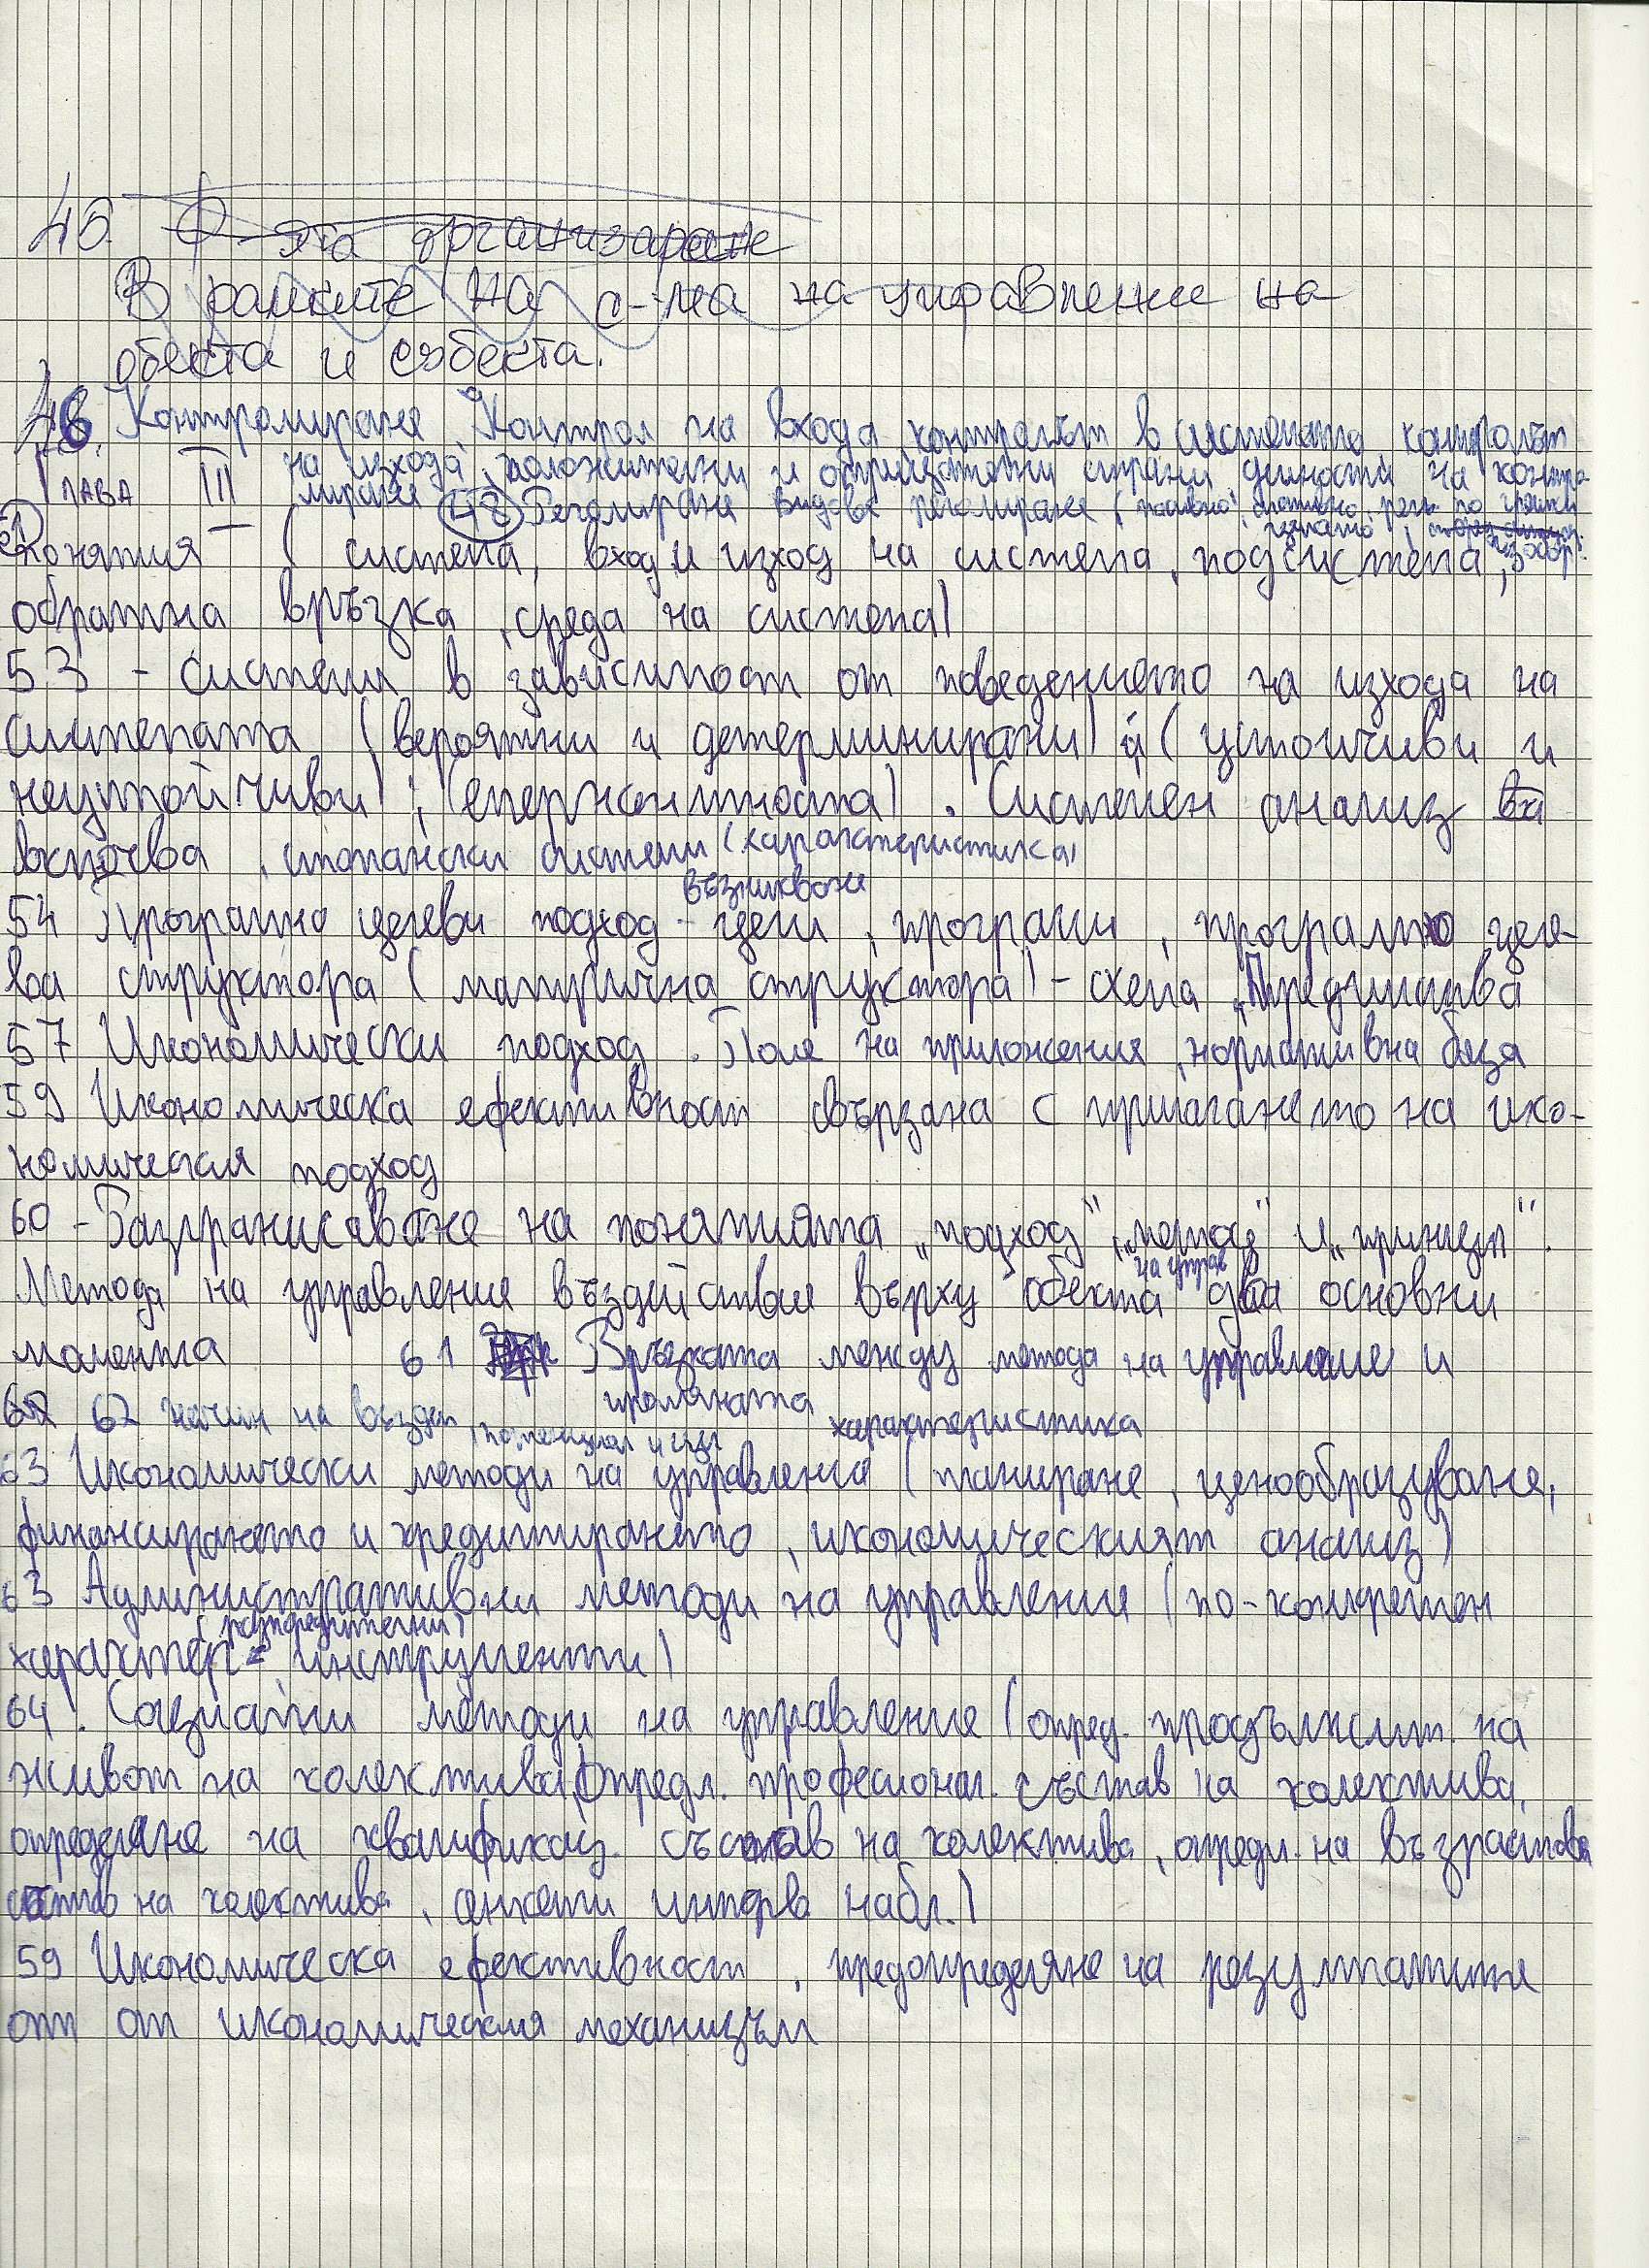 46. Ф-ята организиране
В рамките на с-ма на управление на
обекта и субекта.
46. Контролиране, Контрол на входа, контролът в системата контролът
на изхода, положителни и отрицателни страни, дейности на контро
лиране 48 Регулиране видове регулиране (пасивно, активно, регул. по грешки
ГЛАВА III
Понятия (система, вход и изход на система, подсистема,
обратна връзка, среда на система)
53 - системи в зависимост от поведението на изхода на
системата (вероятни и детерминирани) и (устоичиви и
неустойчиви); (емержентността). Системен анализ вкл
включва, стопански системи (характеристика)
възникване
54 Програмно целеви подход - цели, програми, програмно целе-
ва структора (матрична структора) - схема, Предимства
57 Икономически подход. Поле на приложения, нормативна база
59 Икономическа ефективност свързана с прилагането на ико-
номическия подход
60 - Разграничаване на понятията „подход", „метод" и „принцип".
на управ
Метода на управление въздействие върху обекта два основни
момента 61 Връзката между метода на управление и
промяната
62 62 начин на въздей, потенциал и характеристика
63 Икономически методи на управление (планиране, ценообразуване,
финансирането и кредитирането, икономическият анализ)
63 Административни методи на управление (по-конкретен
(разпоредителни)
характер - инструменти)
64. Социални методи на управление (опред. продължит. на
живот на колектива, опредл. професионал. състав на колектива,
определяне на квалификац. състав на колектива, опредл. на възрастовия
състав на колектива, анкети интерв набл.)
59 Икономическа ефективност, предопределяне на резултатите
от от икономическия механизъм